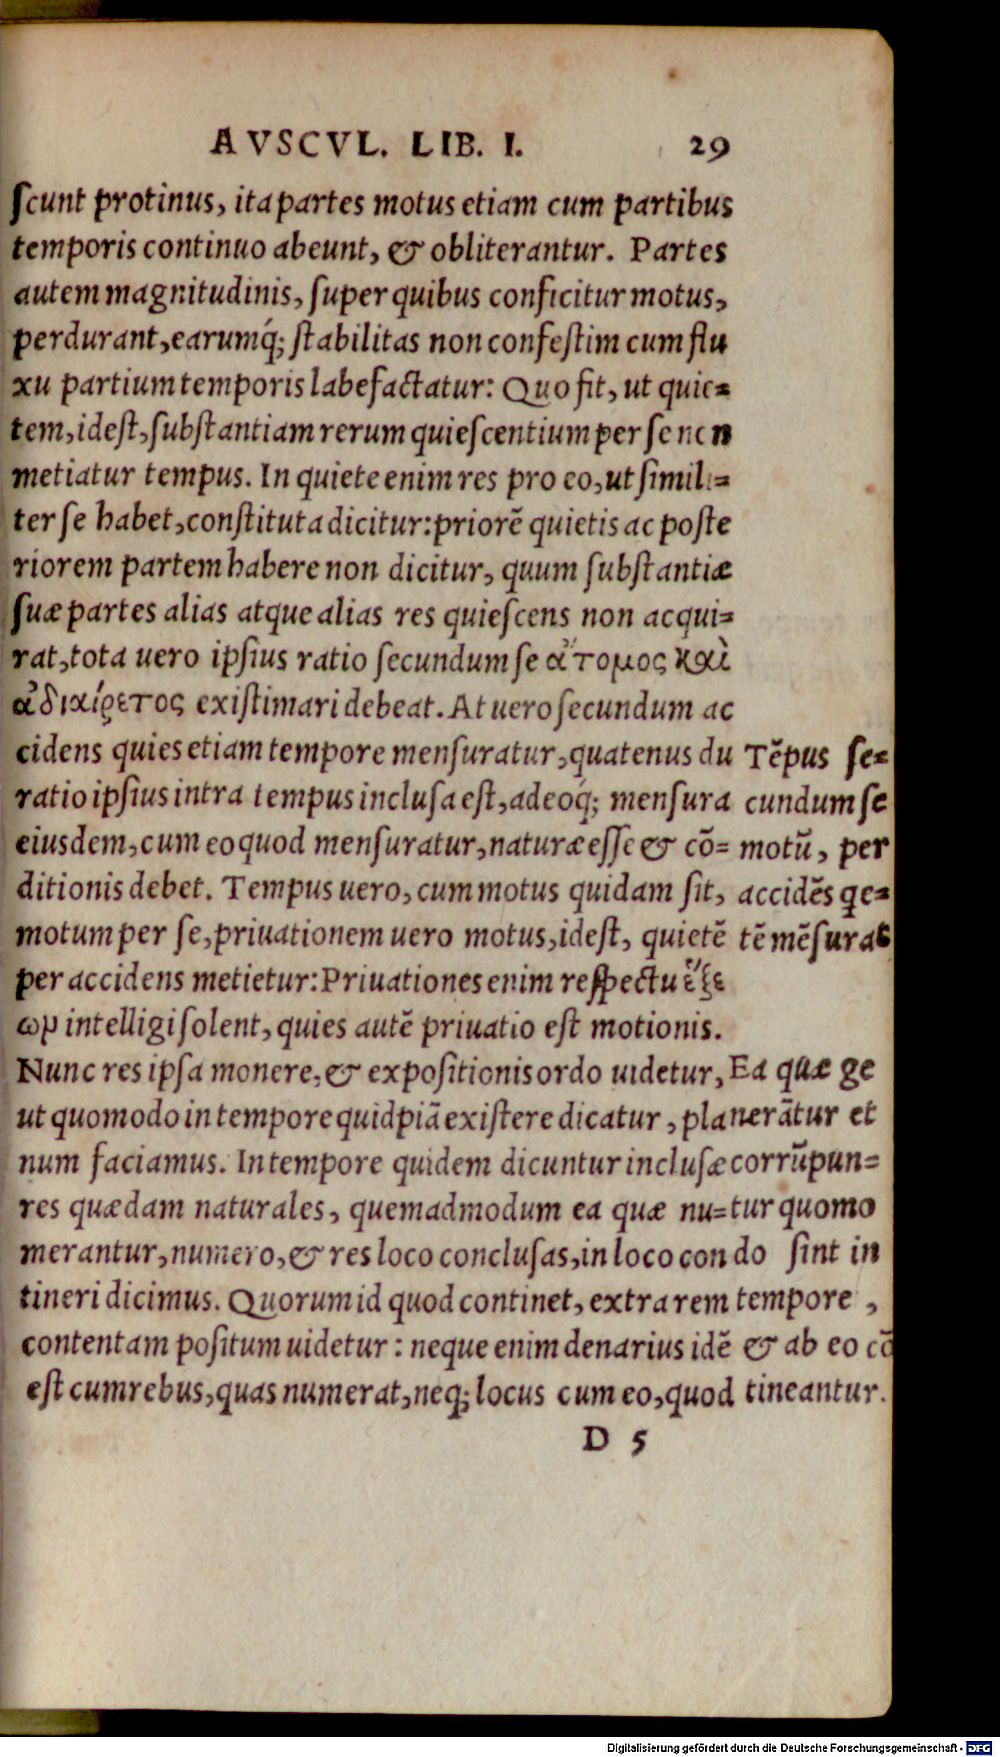 AVSCVL. LIB. I. 29
ſcunt protinus, ita partes motus etiam cum partibus
temporis continuo abeunt, & obliterantur. Partes
autem magnitudinis, ſuper quibus conficitur motus,
perdurant, earumq́; ſtabilitas non confeſtim cum flu
xu partium temporis labefactatur: Quo fit, ut quie=
tem, idest, ſubſtantiam rerum quieſcentium per ſe non
metiatur tempus. In quiete enim res pro eo, ut ſimili=
ter ſe habet, conſtituta dicitur: priorē quietis ac poſte
riorem partem habere non dicitur, quum ſubſtantiæ
ſuæ partes alias atque alias res quieſcens non acqui=
rat, tota uero ipſius ratio ſecundum ſe ἄτομος καὶ
ἀδιαίρετος exiſtimari debeat. At uero ſecundum ac
cidens quies etiam tempore menſuratur, quatenus du
ratio ipſius intra tempus incluſa eſt, adeoq́; menſura
eiusdem, cum eo quod menſuratur, naturæ eſſe & cō=
ditionis debet. Tempus uero, cum motus quidam ſit,
motum per ſe, priuationem uero motus, ideſt, quietē
per accidens metietur: Priuationes enim reſpectu ἕξε
ωμ intelligi ſolent, quies autē priuatio eſt motionis.
Nunc res ipſa monere, & expoſitionis ordo uidetur,
ut quomodo in tempore quidpiā exiſtere dicatur, pla
num faciamus. In tempore quidem dicuntur incluſæ
res quædam naturales, quemadmodum ea quæ nu=
merantur, numero, & res loco concluſas, in loco con
tineri dicimus. Quorum id quod continet, extra rem
contentam poſitum uidetur: neque enim denarius idē
eſt cum rebus, quas numerat, neq; locus cum eo, quod
Tēpus ſe=
cundum ſe
motū, per
accidēs qe=
tē mēſurat
Ea quæ ge
nerātur et
corrūpun=
tur quomo
do ſint in
tempore,
& ab eo cō
tineantur.
D 5
Digitalisierung gefördert durch die Deutsche Forschungsgemeinschaft - DFG